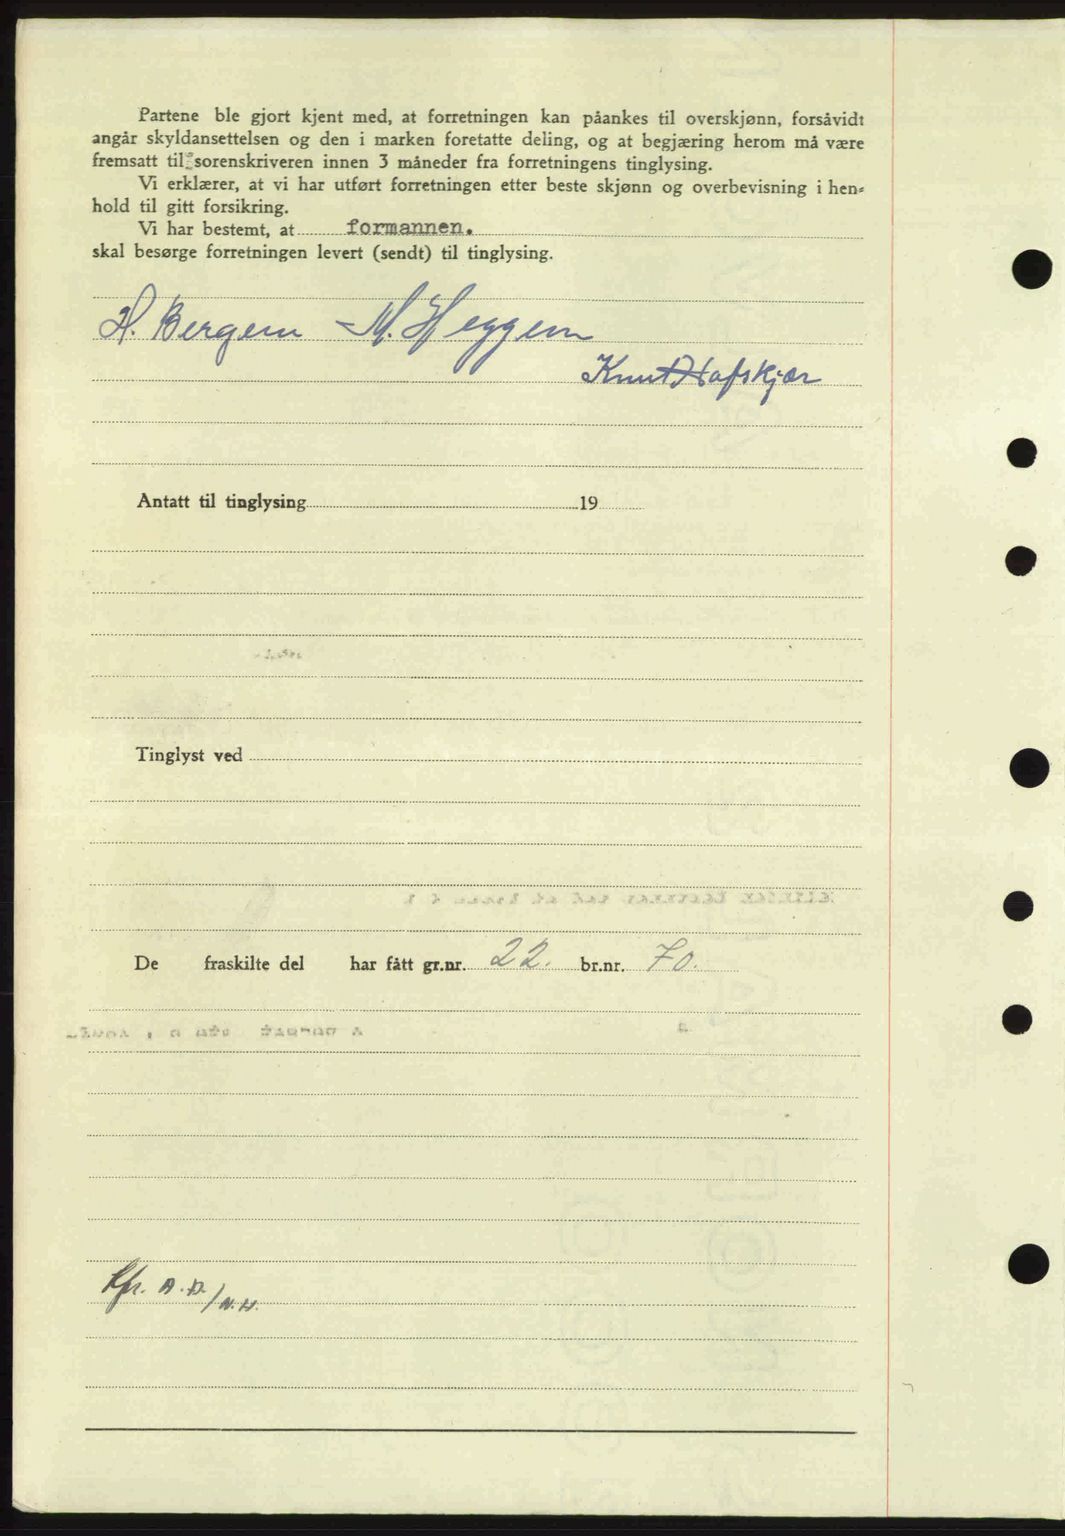 Partene ble gjort kjent med, at forretningen kan påankes til overskjønn, forsåvidt
angår skyldansettelsen og den i marken foretatte deling, og at begjæring herom må være
fremsatt til sorenskriveren innen 3 måneder fra forretningens tinglysing.
Vi erklærer, at vi har utført forretningen etter beste skjønn og overbevisning i hen=
hold til gitt forsikring.
Vi har bestemt, at formannen.
skal besørge forretningen levert (sendt) til tinglysing.
H. Bergem M. Heggem
Knut Hafskjær
Antatt til tinglysing 19
Tinglyst ved
De fraskilte del har fått gr.nr. 22. br.nr. 70.
Kfr. A.D./N.H.